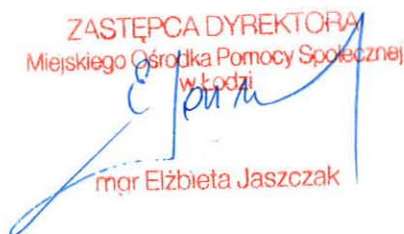 ZASTĘPCA DYREKTORA
Miejskiego Ośrodka Pomocy Społecznej
w Łodzi
mgr Elżbieta Jaszczak